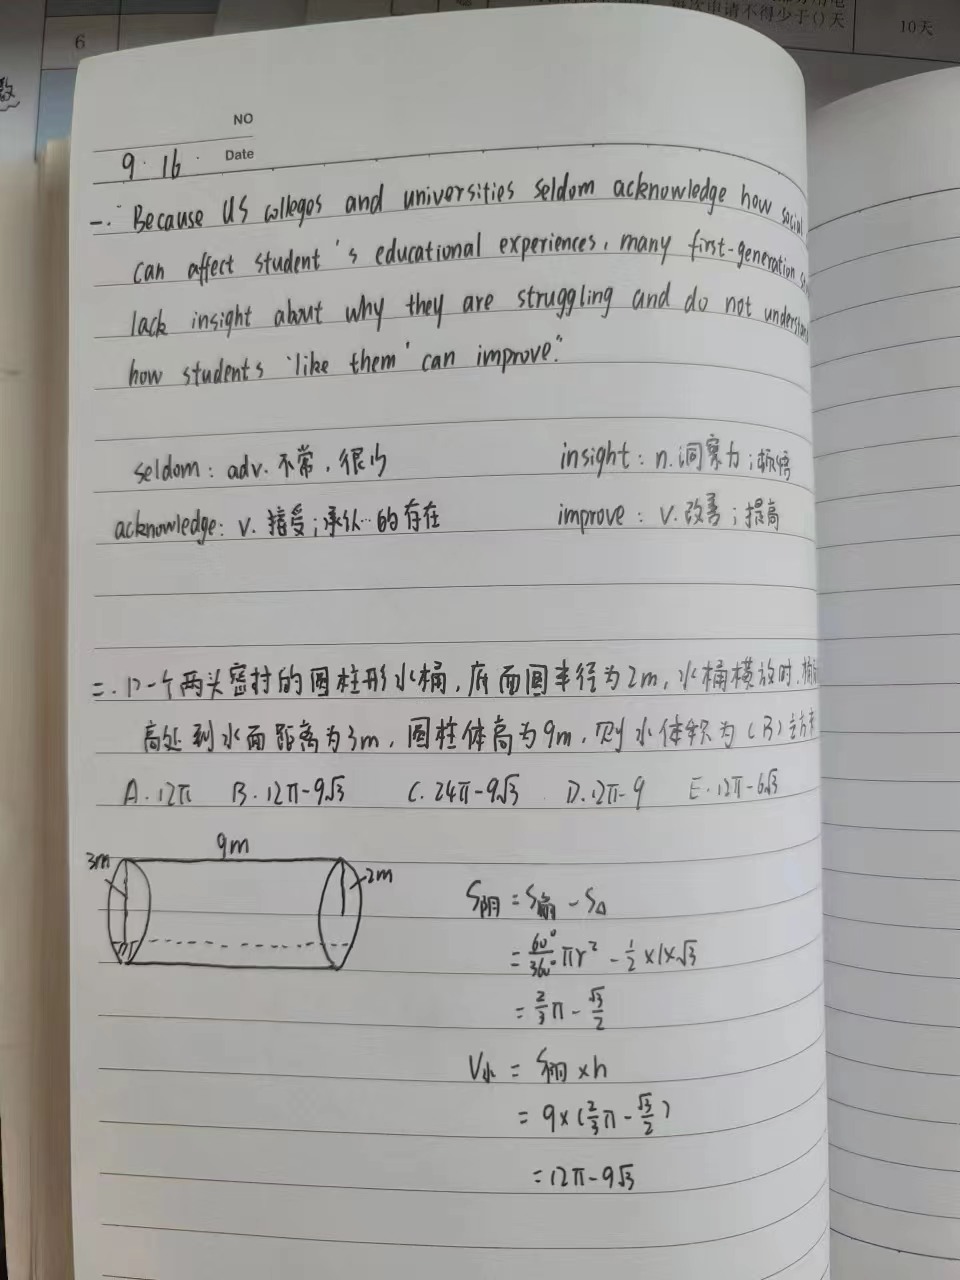 6
每次申请不得少于()天
10天
数
NO
9.16. Date
一."Because US colleges and universities seldom acknowledge how social
can affect student's educational experiences, many first-generation
lack insight about why they are struggling and do not understand
how students 'like them' can improve."
seldom: adv. 不常,很少 insight: n.洞察力;顿悟
acknowledge: v. 接受;承认…的存在 improve: v.改善;提高
二. 1>一个两头密封的圆柱形水桶,底面圆半径为2m,水桶横放时,桶
高处到水面距离为3m,圆柱体高为9m,则水体积为(B)立方米
A.12π B.12π-9√3 C.24π-9√3 D.12π-9 E.12π-6√3
9m
3m
2m
S阴 = S扇 - S△
= 60°/360° πr² - 1/2 ×1×√3
= 2/3 π - √3/2
V水 = S阴 × h
= 9×(2/3 π - √3/2)
= 12π-9√3